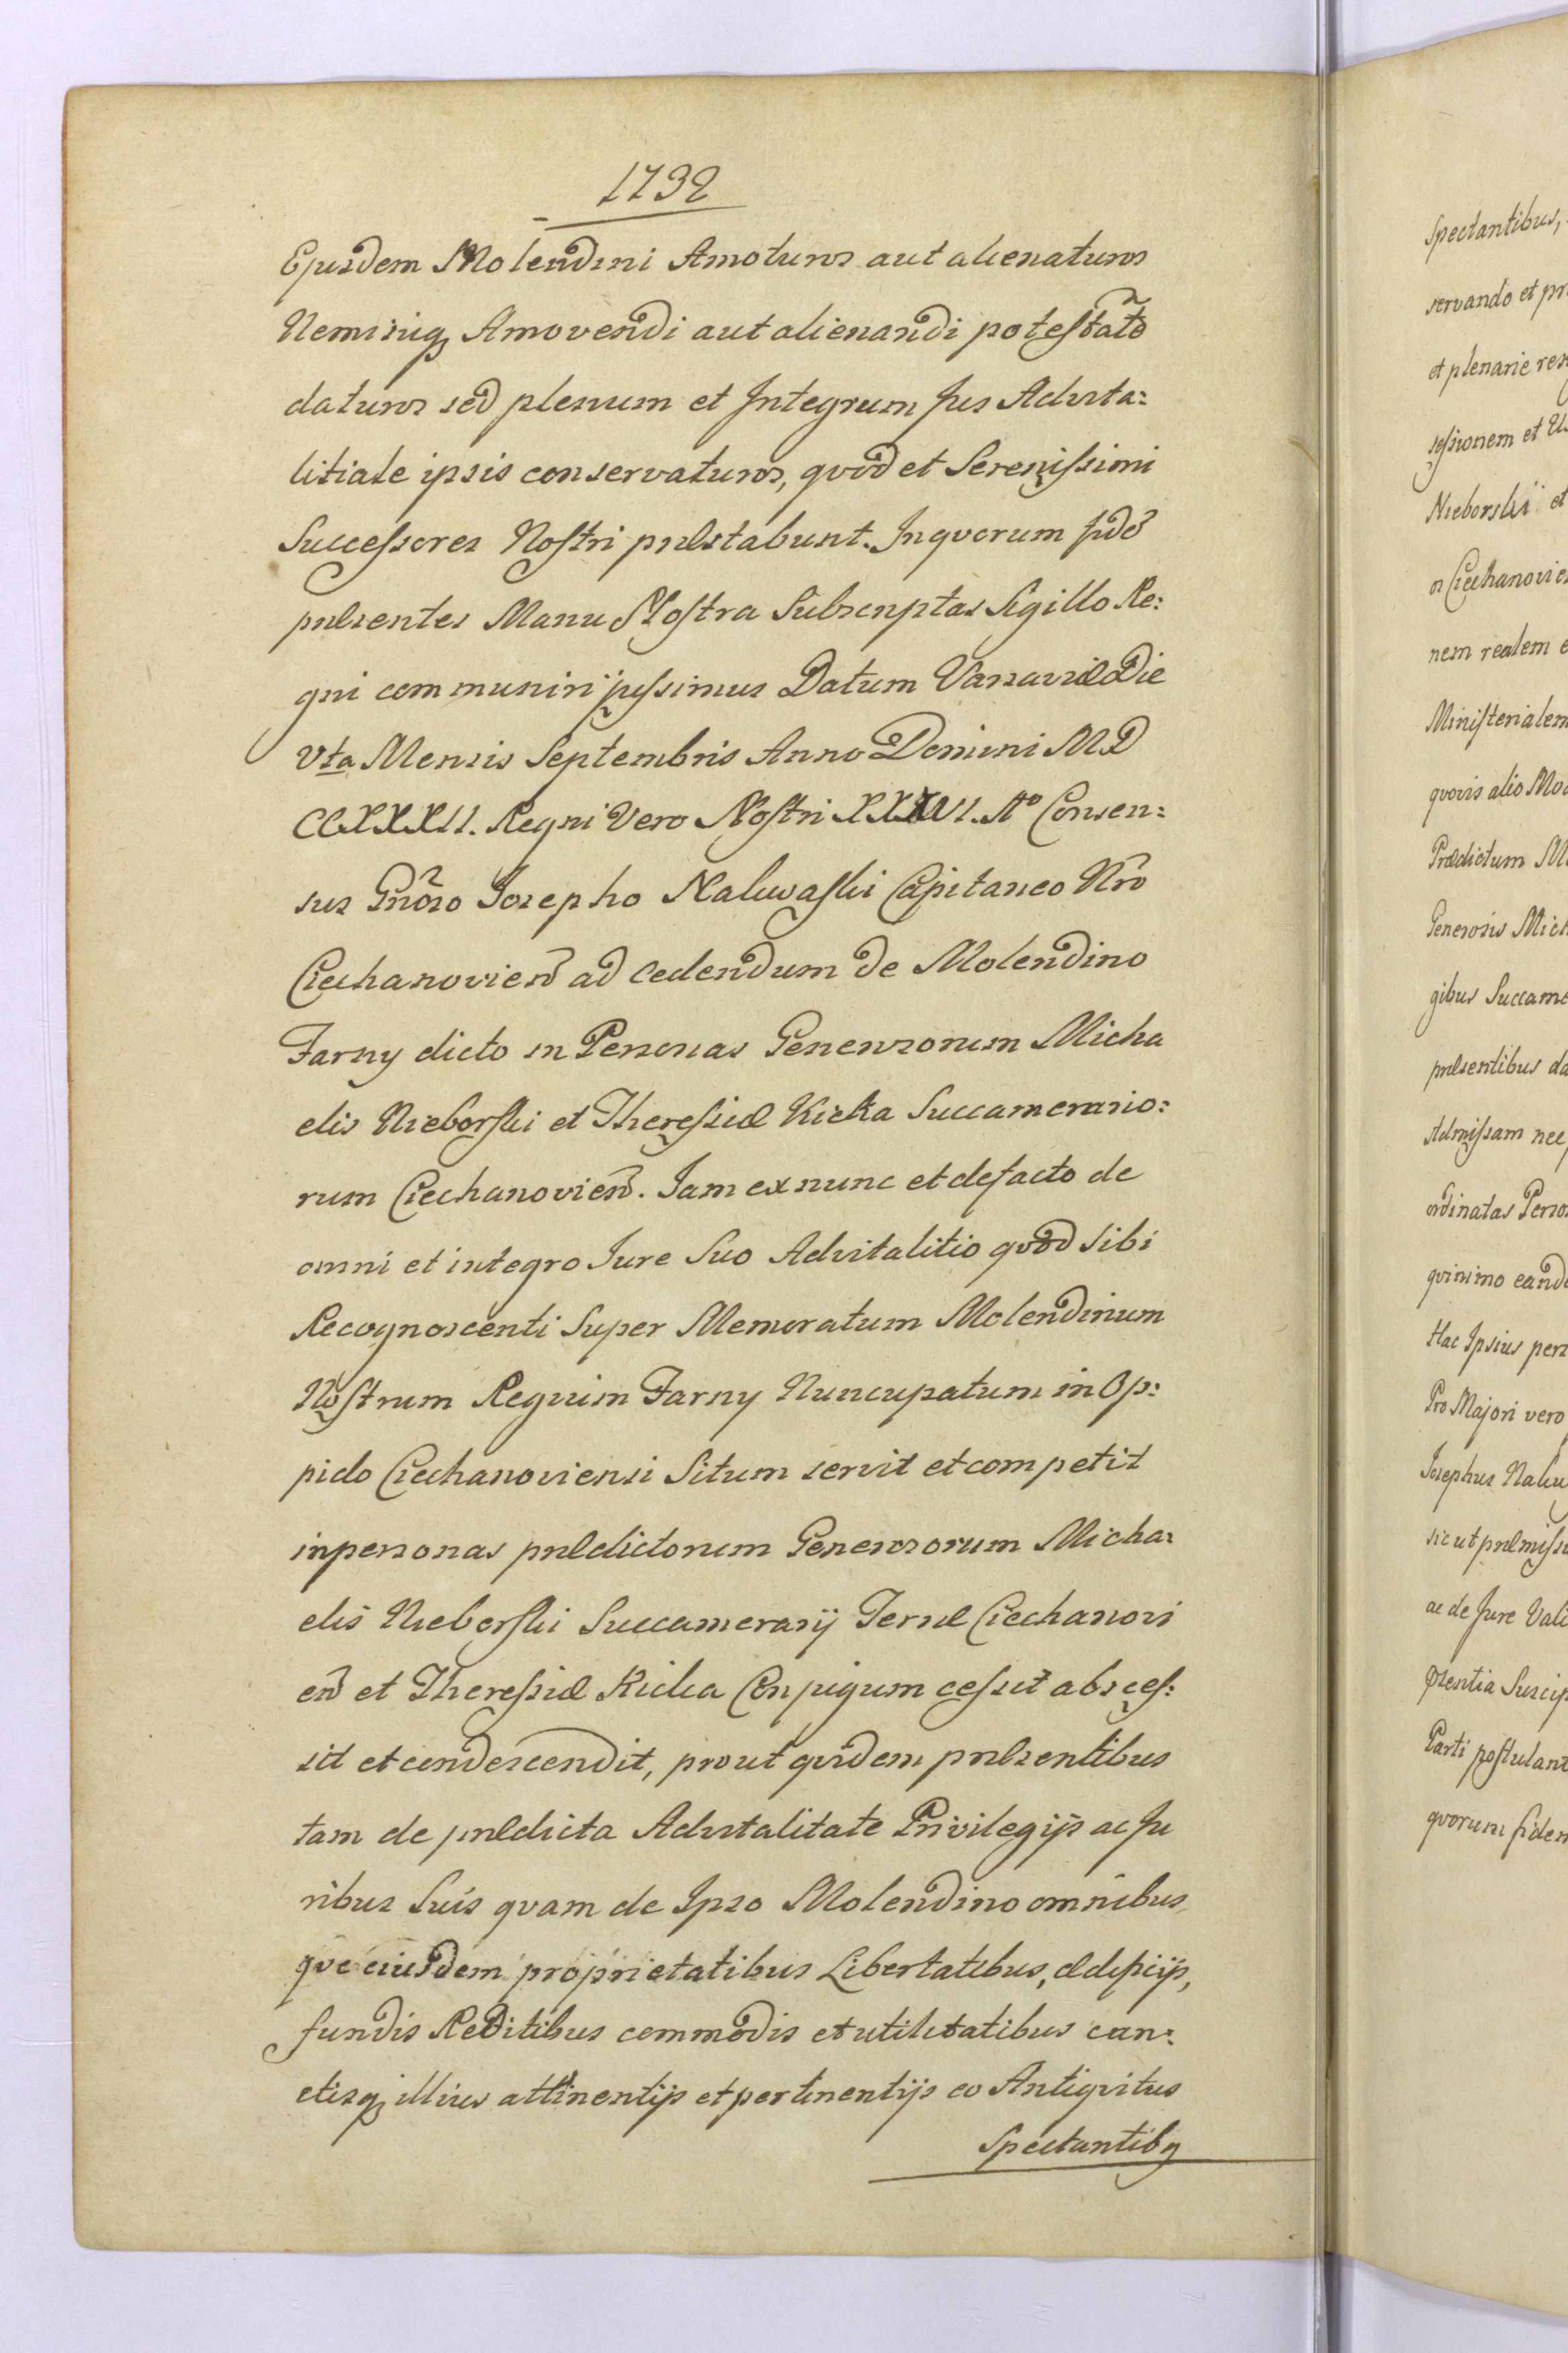 1732
Ejusdem Molendini Amoturos aut alienaturos
Neminiq₃ Amovendi aut alienandi potestatẽ
daturos sed plenum et Integrum Jus Advita:
litiale ipsis conservaturos, qvod et Serenissimi
Successores Nostri præstabunt. Inqvorum fidẽ
præsentes Manu Nostra Subscriptas Sigillo Re:
gni communiri jussimus Datum Varsaviæ Die
Vta Mensis Septembris Anno Domini MD
CCXXXII. Regni Vero Nostri XXXVI. Ao Consen:
sus Gnõso Josepho Nakwaski Capitaneo Nrõ
Ciechanovien̄ ad cedendum de Molendino
Farny dicto in Personas Generosorum Micha
elis Nieborski et Theressiæ Kicka Succamerario:
rum Ciechanovien̄. Jam ex nunc et defacto de
omni et integro Jure Suo Advitalitio qvod sibi
Recognoscenti Super Memoratum Molendinum
Nostrum Regium Farny Nuncupatum in Op:
pido Ciechanoviensi Situm servit et competit
inpersonas prædictorum Generosorum Micha:
elis Nieborski Succamerarij Terræ Ciechanovi
en̄ et Theressiæ Kicka Conjugum cessit absces:
sit et condescendit, prout qvidem præsentibus
tam de prædicta Advitalitate Privilegijs ac Ju
ribus Suis qvam de Ipso Molendino omnibus
qve eiusdem proprietatibus Libertatibus, ædificijs,
fundis Reditibus commodis et utilitatibus cun:
ctisq₃ illius attinentijs et pertinentijs eo Antiqvitus
Spectantibq
Spectantibus,
servando et pr
et plenarie re
sessionem et
Nieborskii et
Ciechanovie
nem realem e
Ministerialem
qvovis alio Mo
Prædictum M
Generosis Mich
gibus Succam
præsentibus da
Admissam nec
ordinatas Perso
qvinimo eand
Hac Ipsius per
Pro Majori vero
Josephus Nakw
sic ut præmiss
ac de Jure Vali
Suscip
Parti postulant
qvorum fidem